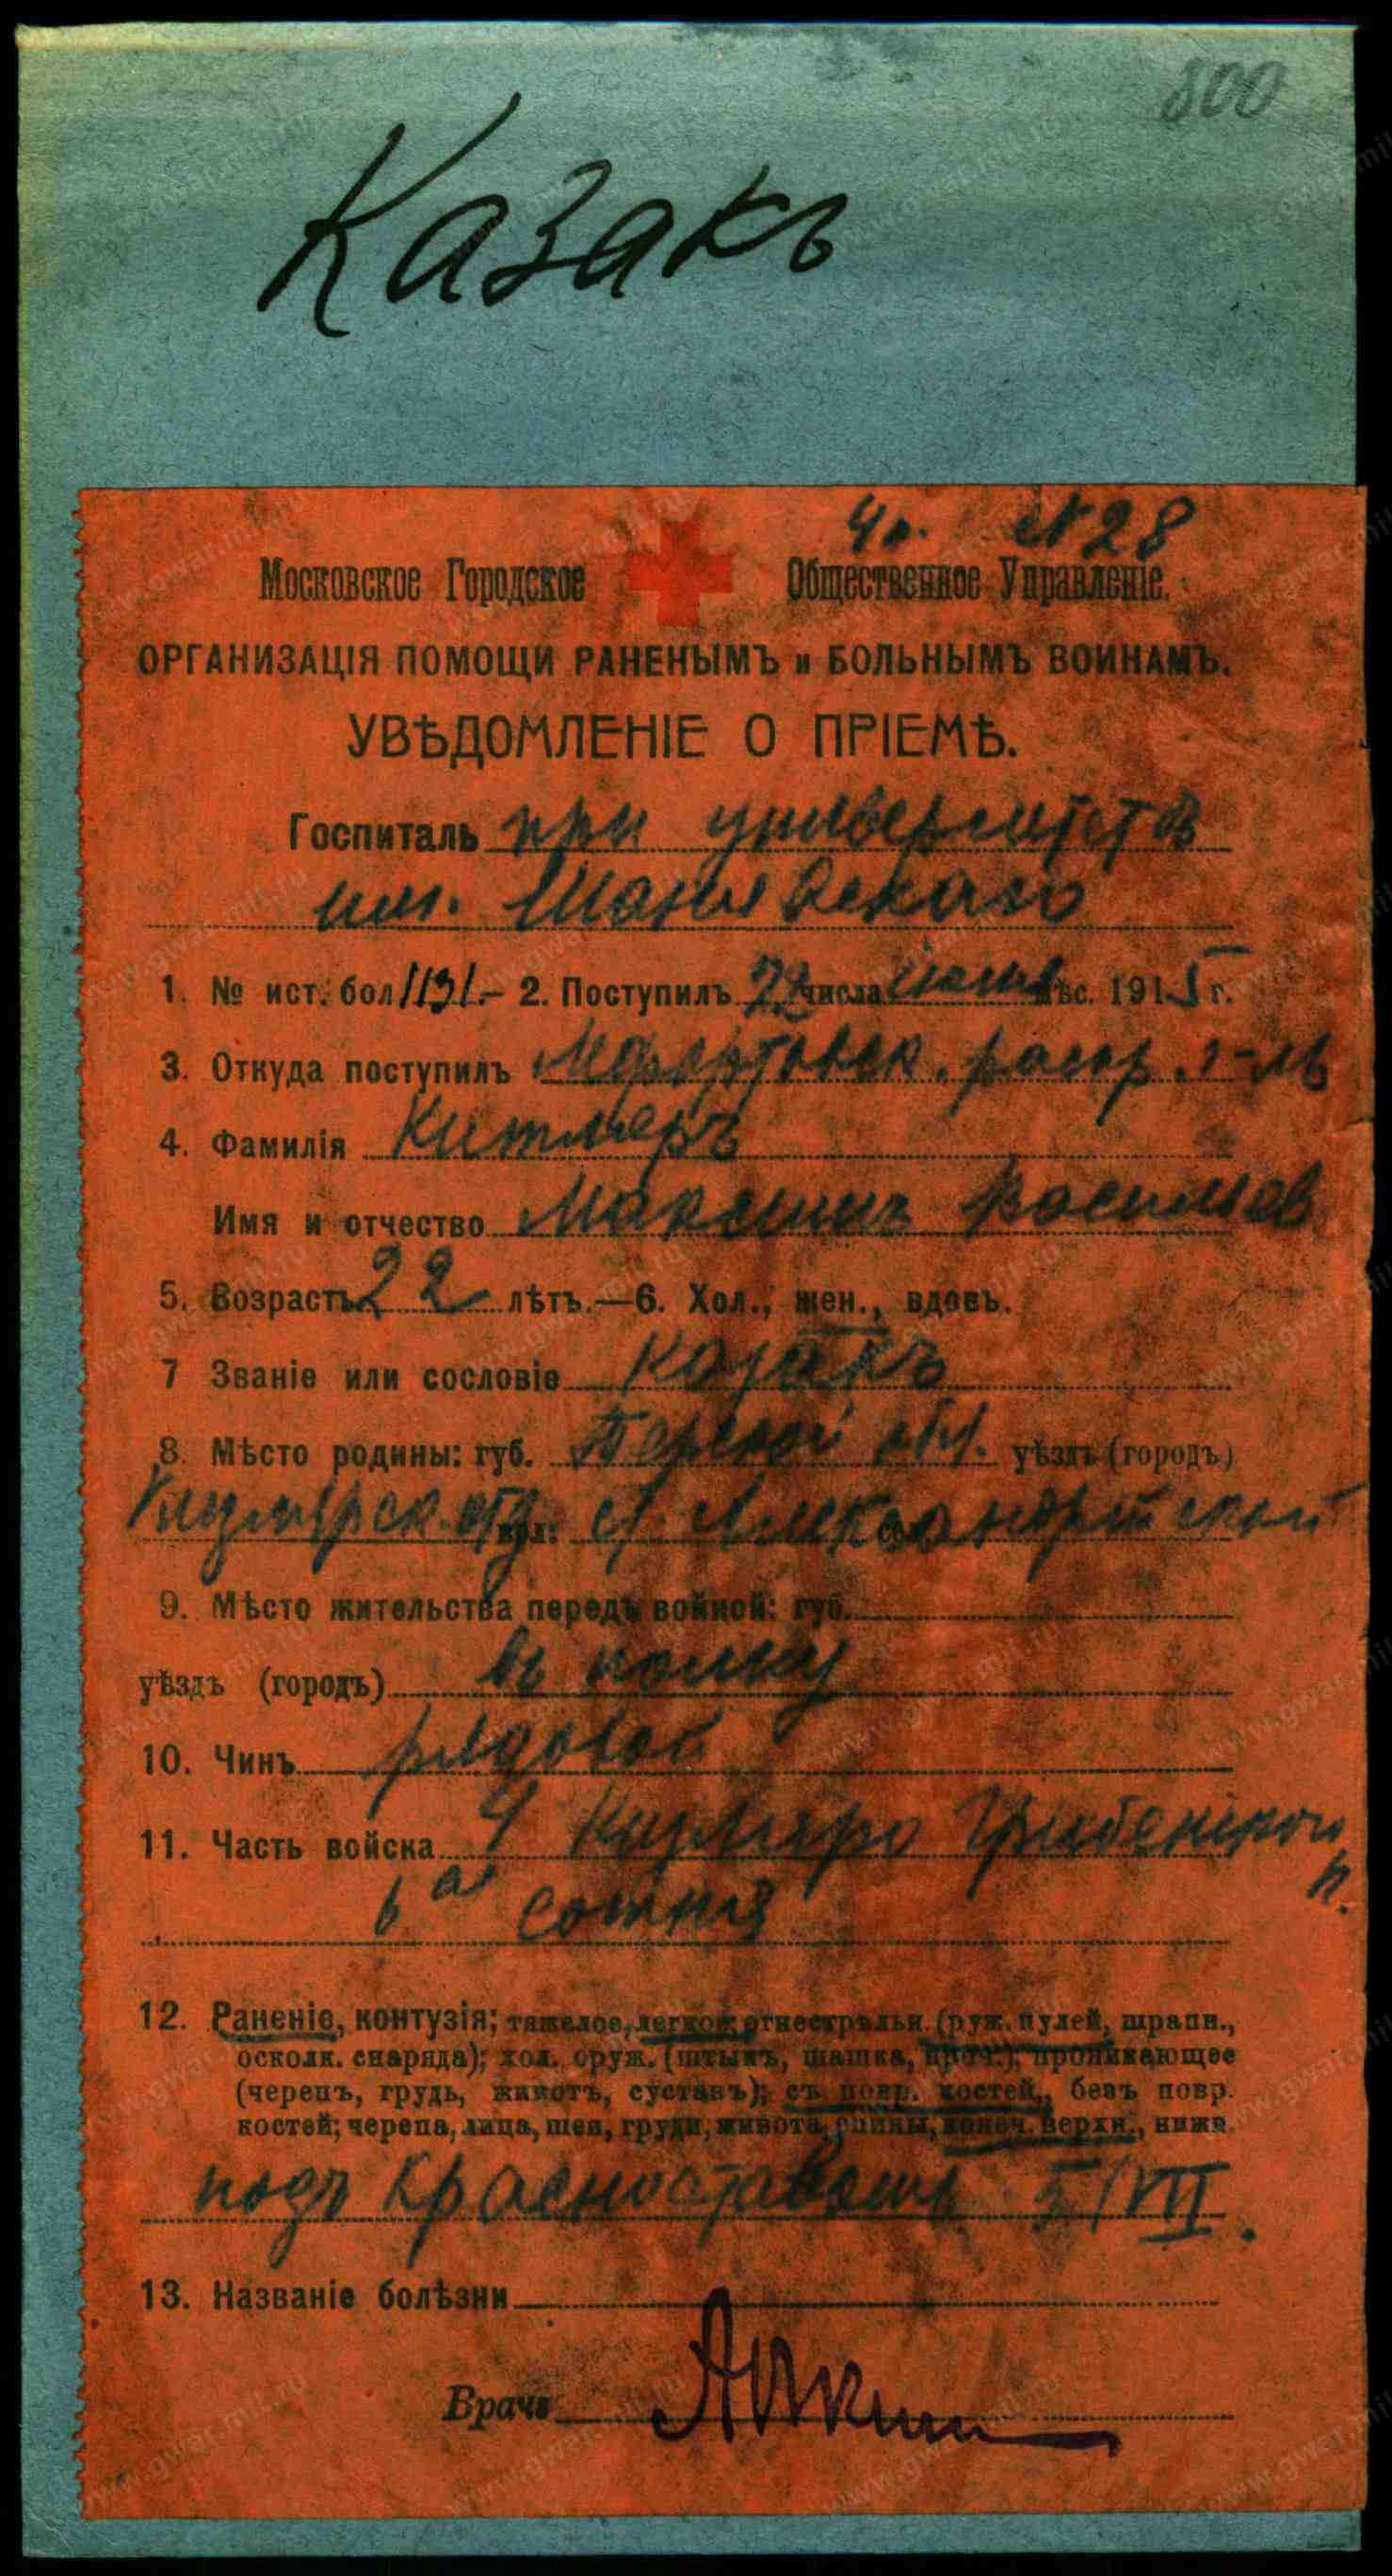 800
Казакъ
4о. №28
Московское Городское Общественное Управленіе.
ОРГАНИЗАЦІЯ ПОМОЩИ РАНЕНЫМЪ и БОЛЬНЫМЪ ВОИНАМЪ.
УВѢДОМЛЕНІЕ О ПРІЕМѢ.
Госпиталь при университетѣ
им. Шанявскаго
1. № ист. бол 1131.- 2. Поступилъ числа мѣс. 1915 г.
3. Откуда поступилъ распр. г-ль
4. Фамилія Китляеръ
Имя и отчество Максимъ Васильев
5. Возрастъ 22 лѣтъ.—6. Хол., жен., вдовъ.
7 Званіе или сословіе казакъ
8. Мѣсто родины: губ. Терской обл. уѣздъ (городъ)
Кизлярск. отд вол. с. Александрійской
9. Мѣсто жительства передъ войной: губ.
уѣздъ (городъ) въ полку
10. Чинъ рядовой
11. Часть войска Кизляро Гребенской
п.
6ая сотня
12. Раненіе, контузія; тяжелое, легкое; огнестрѣльн. (руж. пулей, шрапн.,
осколк. снаряда); хол. оруж. (штыкъ, шашка, проч.); проникающее
(черепъ, грудь, животъ, суставъ); съ повр. костей, безъ повр.
костей; черепа, лица, шеи, груди, живота, спины, конеч. верхн., нижн.
подъ Красноставомъ 5/VII.
13. Названіе болѣзни
Врачъ
www.gwar.mil.ru